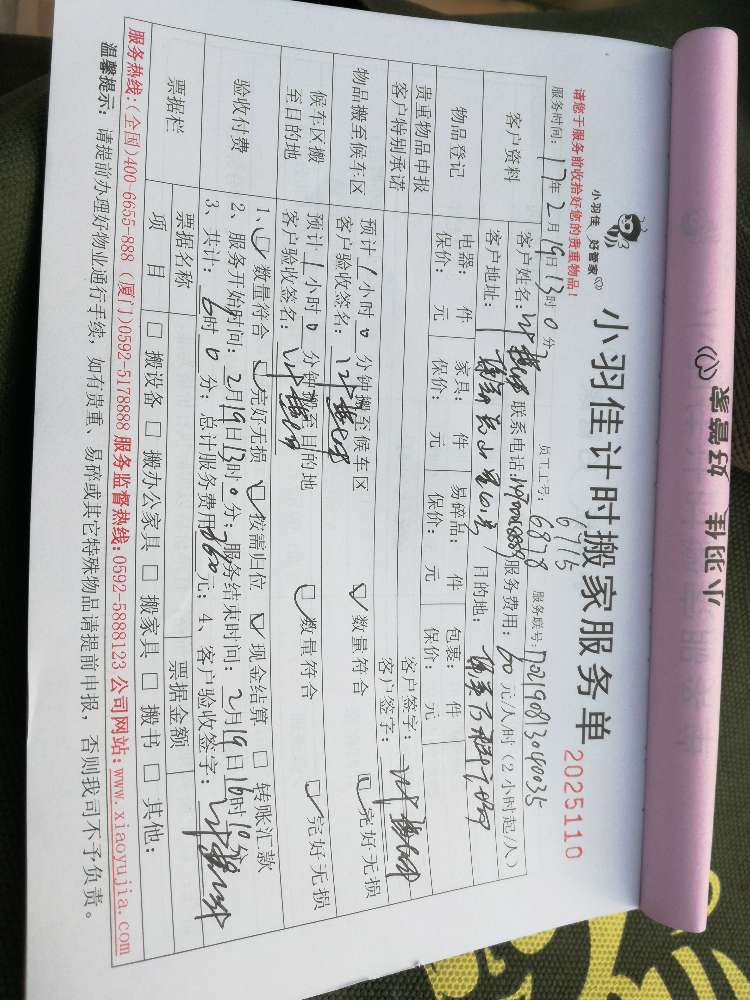 小羽佳 好管家
小羽佳 好管家
小羽佳计时搬家服务单
2025110
请您于服务前收拾好您的贵重物品!
服务时间: 17年2月19日13时0分 员工工号: 6715 6878 服务联号:
客户资料 客户姓名: 联系电话: 服务费用: 60元/人/时(2小时起/人)
客户地址: 目的地:
物品登记 电器: 件 家具: 件 易碎品: 件 包裹: 件
保价: 元 保价: 元 保价: 元 保价: 元
贵重物品申报 客户签字:
客户特别承诺 客户签字:
物品搬至候车区 预计1小时0分钟搬至候车区 数量符合 完好无损
客户验收签名:
候车区搬至目的地 预计1小时0分钟搬至目的地 数量符合 完好无损
客户验收签名:
验收付费 1、数量符合 完好无损 按需归位 现金结算 □ 转账汇款
2、服务开始时间: 2月19日13时0分; 服务结束时间: 2月19日16时10分
3、共计: 6时0分; 总计服务费用360元; 4、客户验收签字:
票据栏 票据名称 票据金额
项 目 □ 搬设备 □ 搬办公家具 □ 搬家具 □ 搬书 □ 其他:
服务热线:(全国)400-6655-888 (厦门)0592-5178888 服务监督热线:0592-5888123 公司网站:www.xiaoyujia.com
温馨提示: 请提前办理好物业通行手续, 如有贵重、易碎或其它特殊物品请提前申报, 否则我司不予负责。